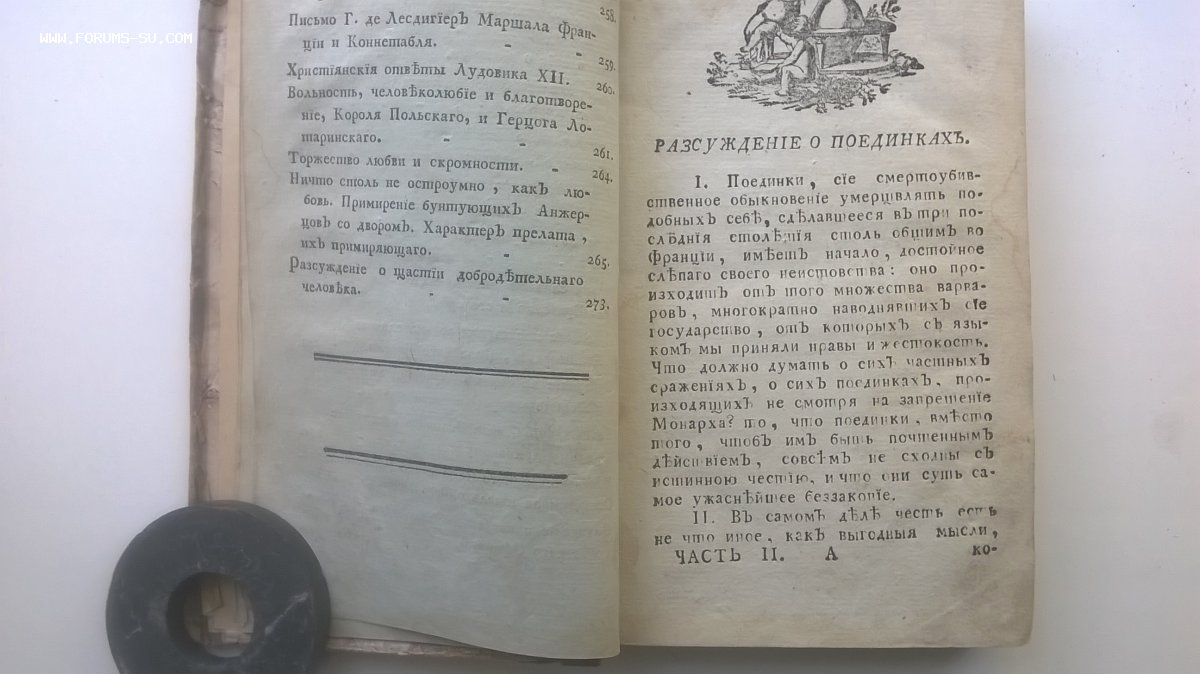 WWW.FORUMS-SU.COM
258.
Письмо Г. де Лесдигїеръ Маршала Фран-
цїи и Коннетабля. - - 259.
Христїянскїя отвѣты Лудовика XII. 260.
Вольность, человѣколюбїе и благотворе-
нїе, Короля Польскаго, и Герцога Ло-
таринскаго. - - 261.
Торжество любви и скромности. - 264.
Ничто столь не остроумно, какъ лю-
бовь. Примиренїе бунтующихъ Анжер-
цовъ со дворомъ. Характеръ прелата,
ихъ примиряющаго. - 265.
Разсужденїе о щастїи добродѣтельнаго
человѣка. - - 273.
РАЗСУЖДЕНІЕ О ПОЕДИНКАХЪ.
I. Поединки, сїе смертоубив-
ственное обыкновенїе умерщвлять по-
добныхъ себѣ, сдѣлавшееся въ три по-
слѣднїя столѣтїя столь общимъ во
Францїи, имѣетъ начало, достойное
слѣпаго своего неистовства: оно про-
изходитъ отъ того множества варва-
ровъ, многократно наводнявшихъ сїе
государство, отъ которыхъ съ язы-
комъ мы приняли нравы и жестокость.
Что должно думать о сихъ частныхъ
сраженїяхъ, о сихъ поединкахъ, про-
изходящихъ не смотря на запрещенїе
Монарха? то, что поединки, вмѣсто
того, чтобъ имъ быть почтеннымъ
дѣйствїемъ, совсѣмъ не сходны съ
истинною честїю, и что они суть са-
мое ужаснѣйшее беззаконїе.
II. Въ самомъ дѣлѣ честь есть
не что иное, какъ выгодныя мысли,
ЧАСТЬ II. А ко-